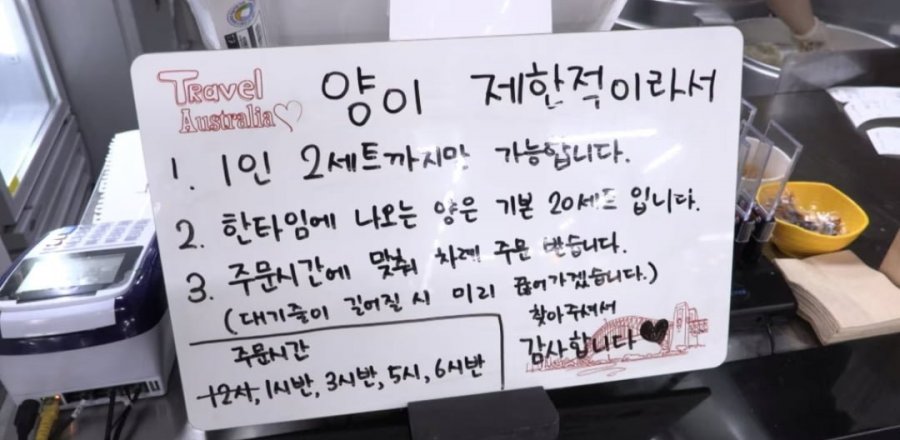 Travel
Australia
양이 제한적이라서
1. 1인 2세트까지만 가능합니다.
2. 한타임에 나오는 양은 기본 20세트 입니다.
3. 주문시간에 맞춰 차례 주문 받습니다.
(대기줄이 길어질 시 미리 끊어가겠습니다.)
찾아주셔서
감사합니다
주문시간
12시, 1시반, 3시반, 5시, 6시반